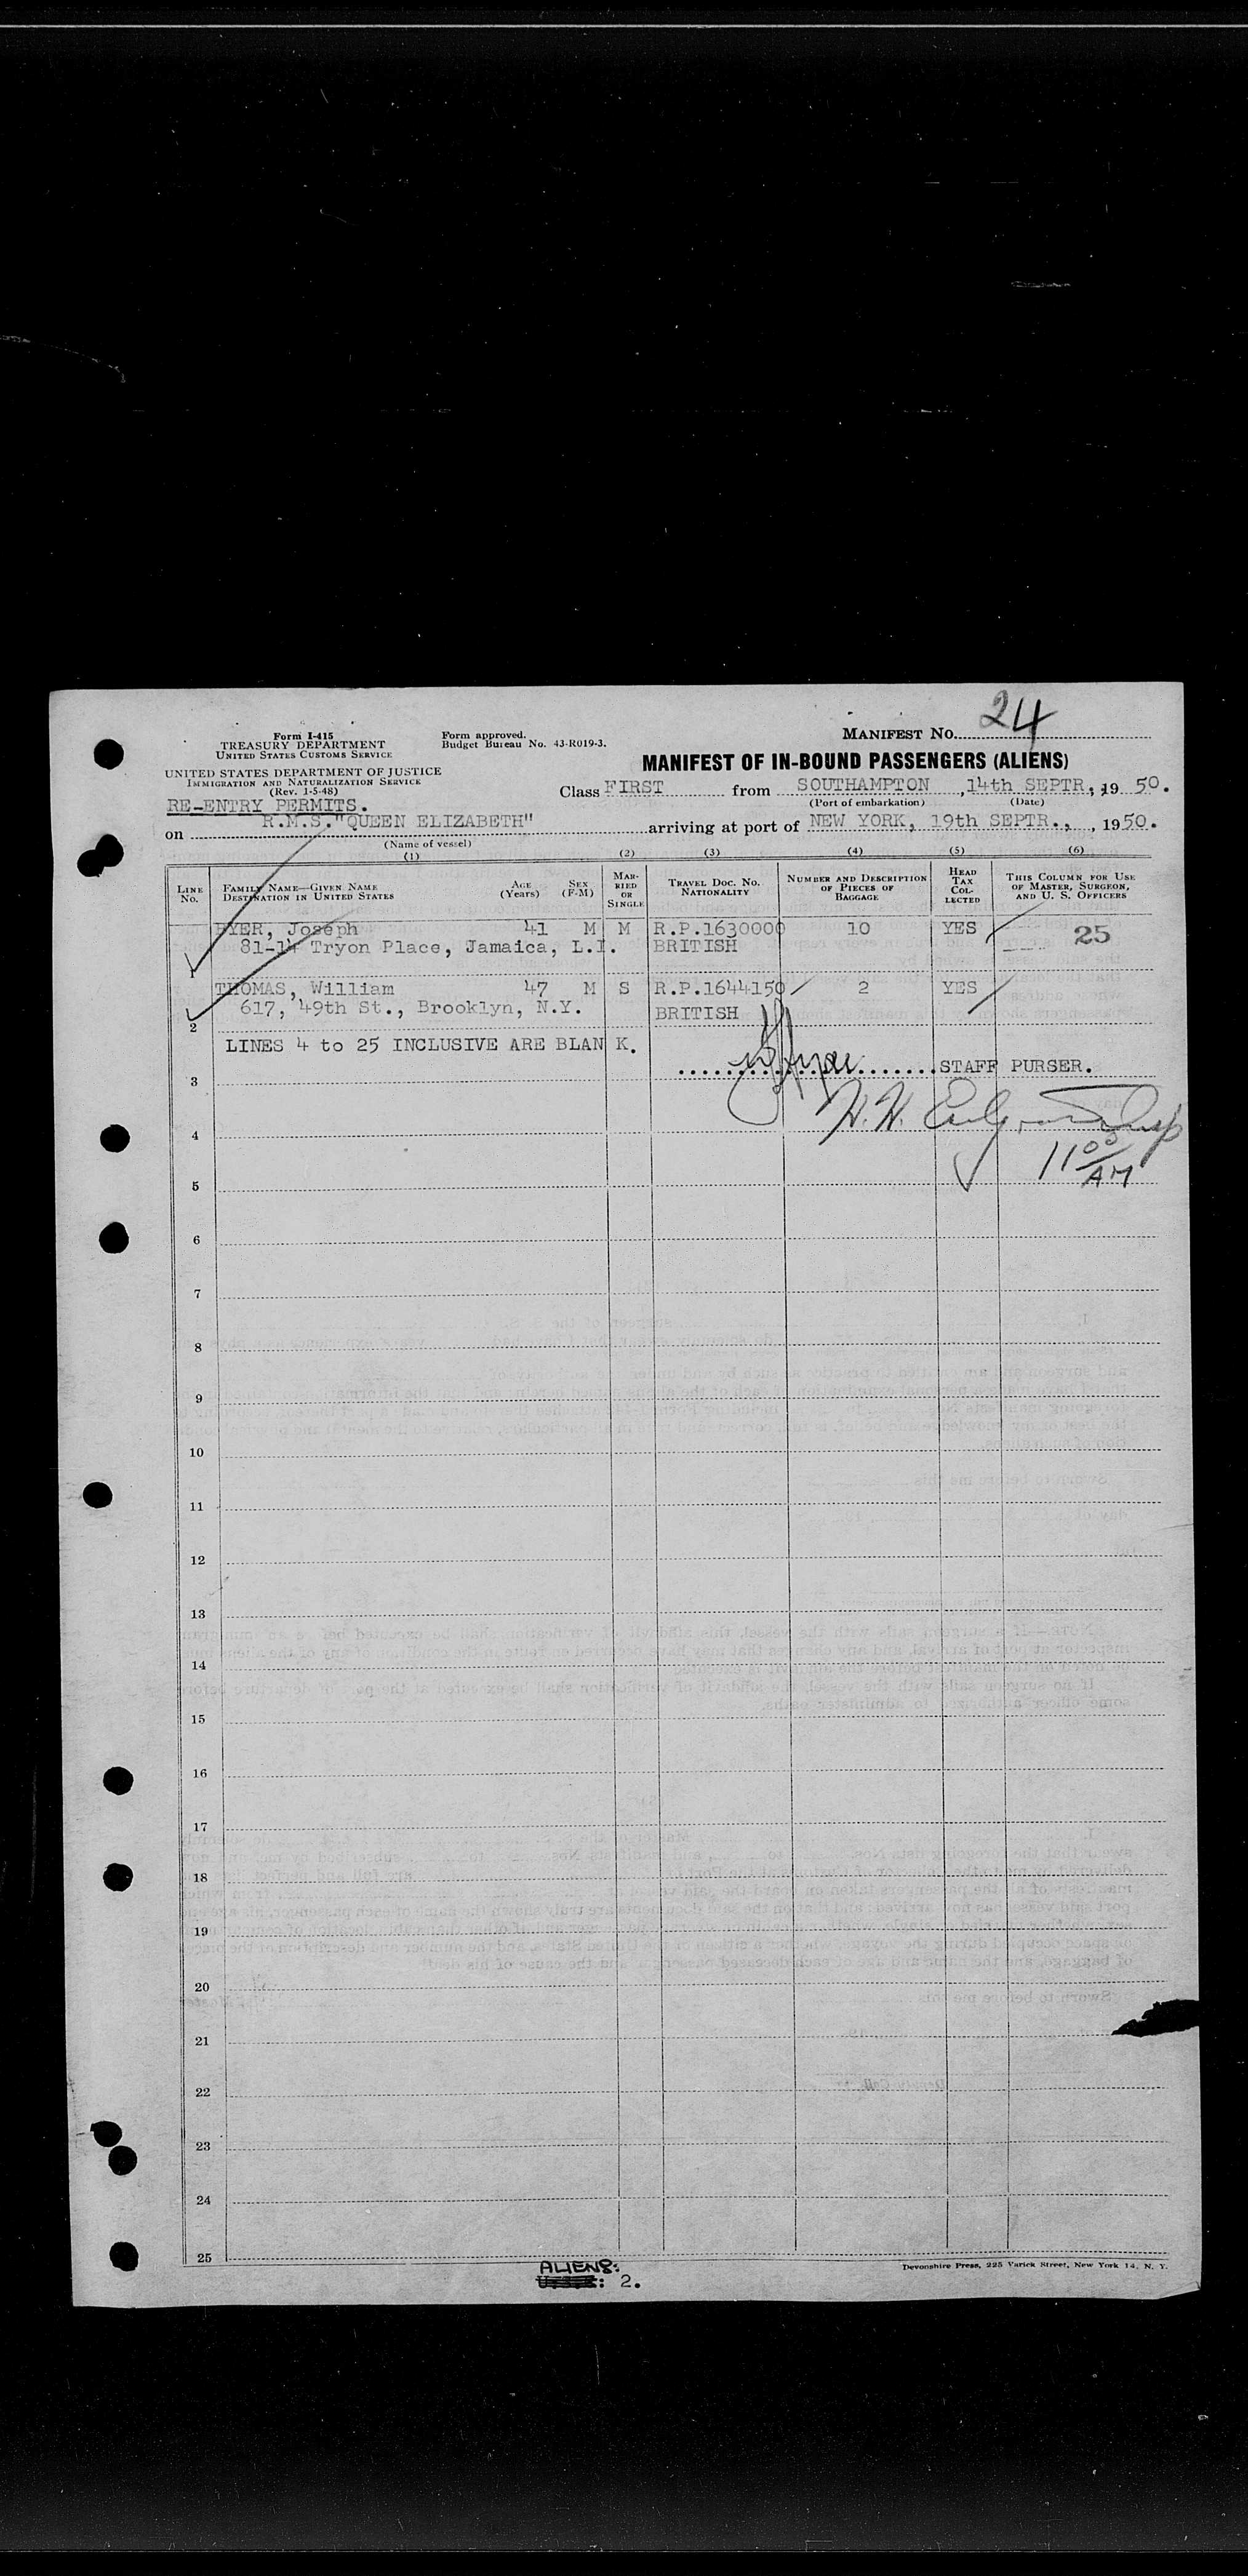 24
Form I-415
TREASURY DEPARTMENT
UNITED STATES CUSTOMS SERVICE
Form approved.
Budget Bureau No. 43-R019-3.
MANIFEST NO.
UNITED STATES DEPARTMENT OF JUSTICE
IMMIGRATION AND NATURALIZATION SERVICE
(Rev. 1-5-48)
MANIFEST OF IN-BOUND PASSENGERS (ALIENS)
RE-ENTRY PERMITS.
Class FIRST from SOUTHAMPTON, 14th SEPTR., 19 50.
(Port of embarkation) (Date)
on R.M.S. "QUEEN ELIZABETH" arriving at port of NEW YORK, 19th SEPTR., , 1950.
(Name of vessel)
(1) (2) (3) (4) (5) (6)
LINE NO. FAMILY NAME—GIVEN NAME DESTINATION IN UNITED STATES AGE (YEARS) SEX (F-M) MARRIED OR SINGLE TRAVEL DOC. NO. NATIONALITY NUMBER AND DESCRIPTION OF PIECES OF BAGGAGE HEAD TAX COLLECTED THIS COLUMN FOR USE OF MASTER, SURGEON, AND U. S. OFFICERS
Joseph 41 M M R.P.1630000 10 YES 25
81-14 Tryon Place, Jamaica, L.I. BRITISH
1
THOMAS, William 47 M S R.P.1644150 2 YES
617, 49th St., Brooklyn, N.Y. BRITISH
2
LINES 4 to 25 INCLUSIVE ARE BLANK.
STAFF PURSER.
3
4
11 00 AM
5
6
7
8
9
10
11
12
13
14
15
16
17
18
19
20
21
22
23
24
25
Devonshire Press, 225 Varick Street, New York 14, N. Y.
ALIENS:
: 2.